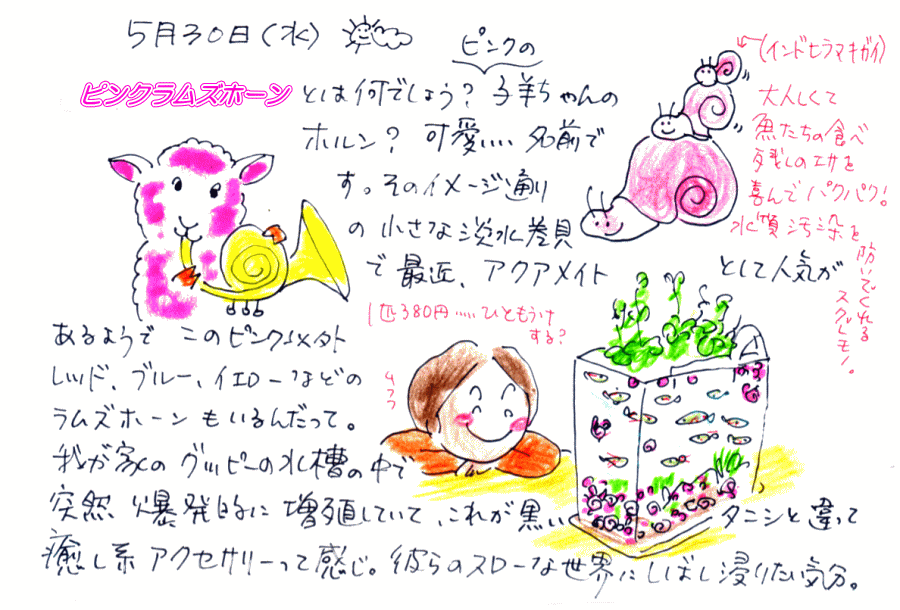 5月30日(水)
ピンクの
ピンクラムズホーン とは何でしょう？ 子羊ちゃんの
ホルン？ 可愛い… 名前で
す。そのイメージ通り
の 小さな淡水巻貝
で 最近、アクアメイト として人気が
あるようで このピンク以外
レッド、ブルー、イエローなどの
ラムズホーンもいるんだって。
我が家の グッピーの水槽の中で
突然 爆発的に 増殖していて、これが黒い タニシと違って
癒し系 アクセサリーって感じ。彼らのスローな世界にしばし浸りたい気分。
←(インドヒラマキガイ)
大人しくて
魚たちの食べ
残しのエサを
喜んでパクパク！
水質汚染を
防いでくれる
スグレモノ。
1匹380円……ひともうけ
する？
ムフフ